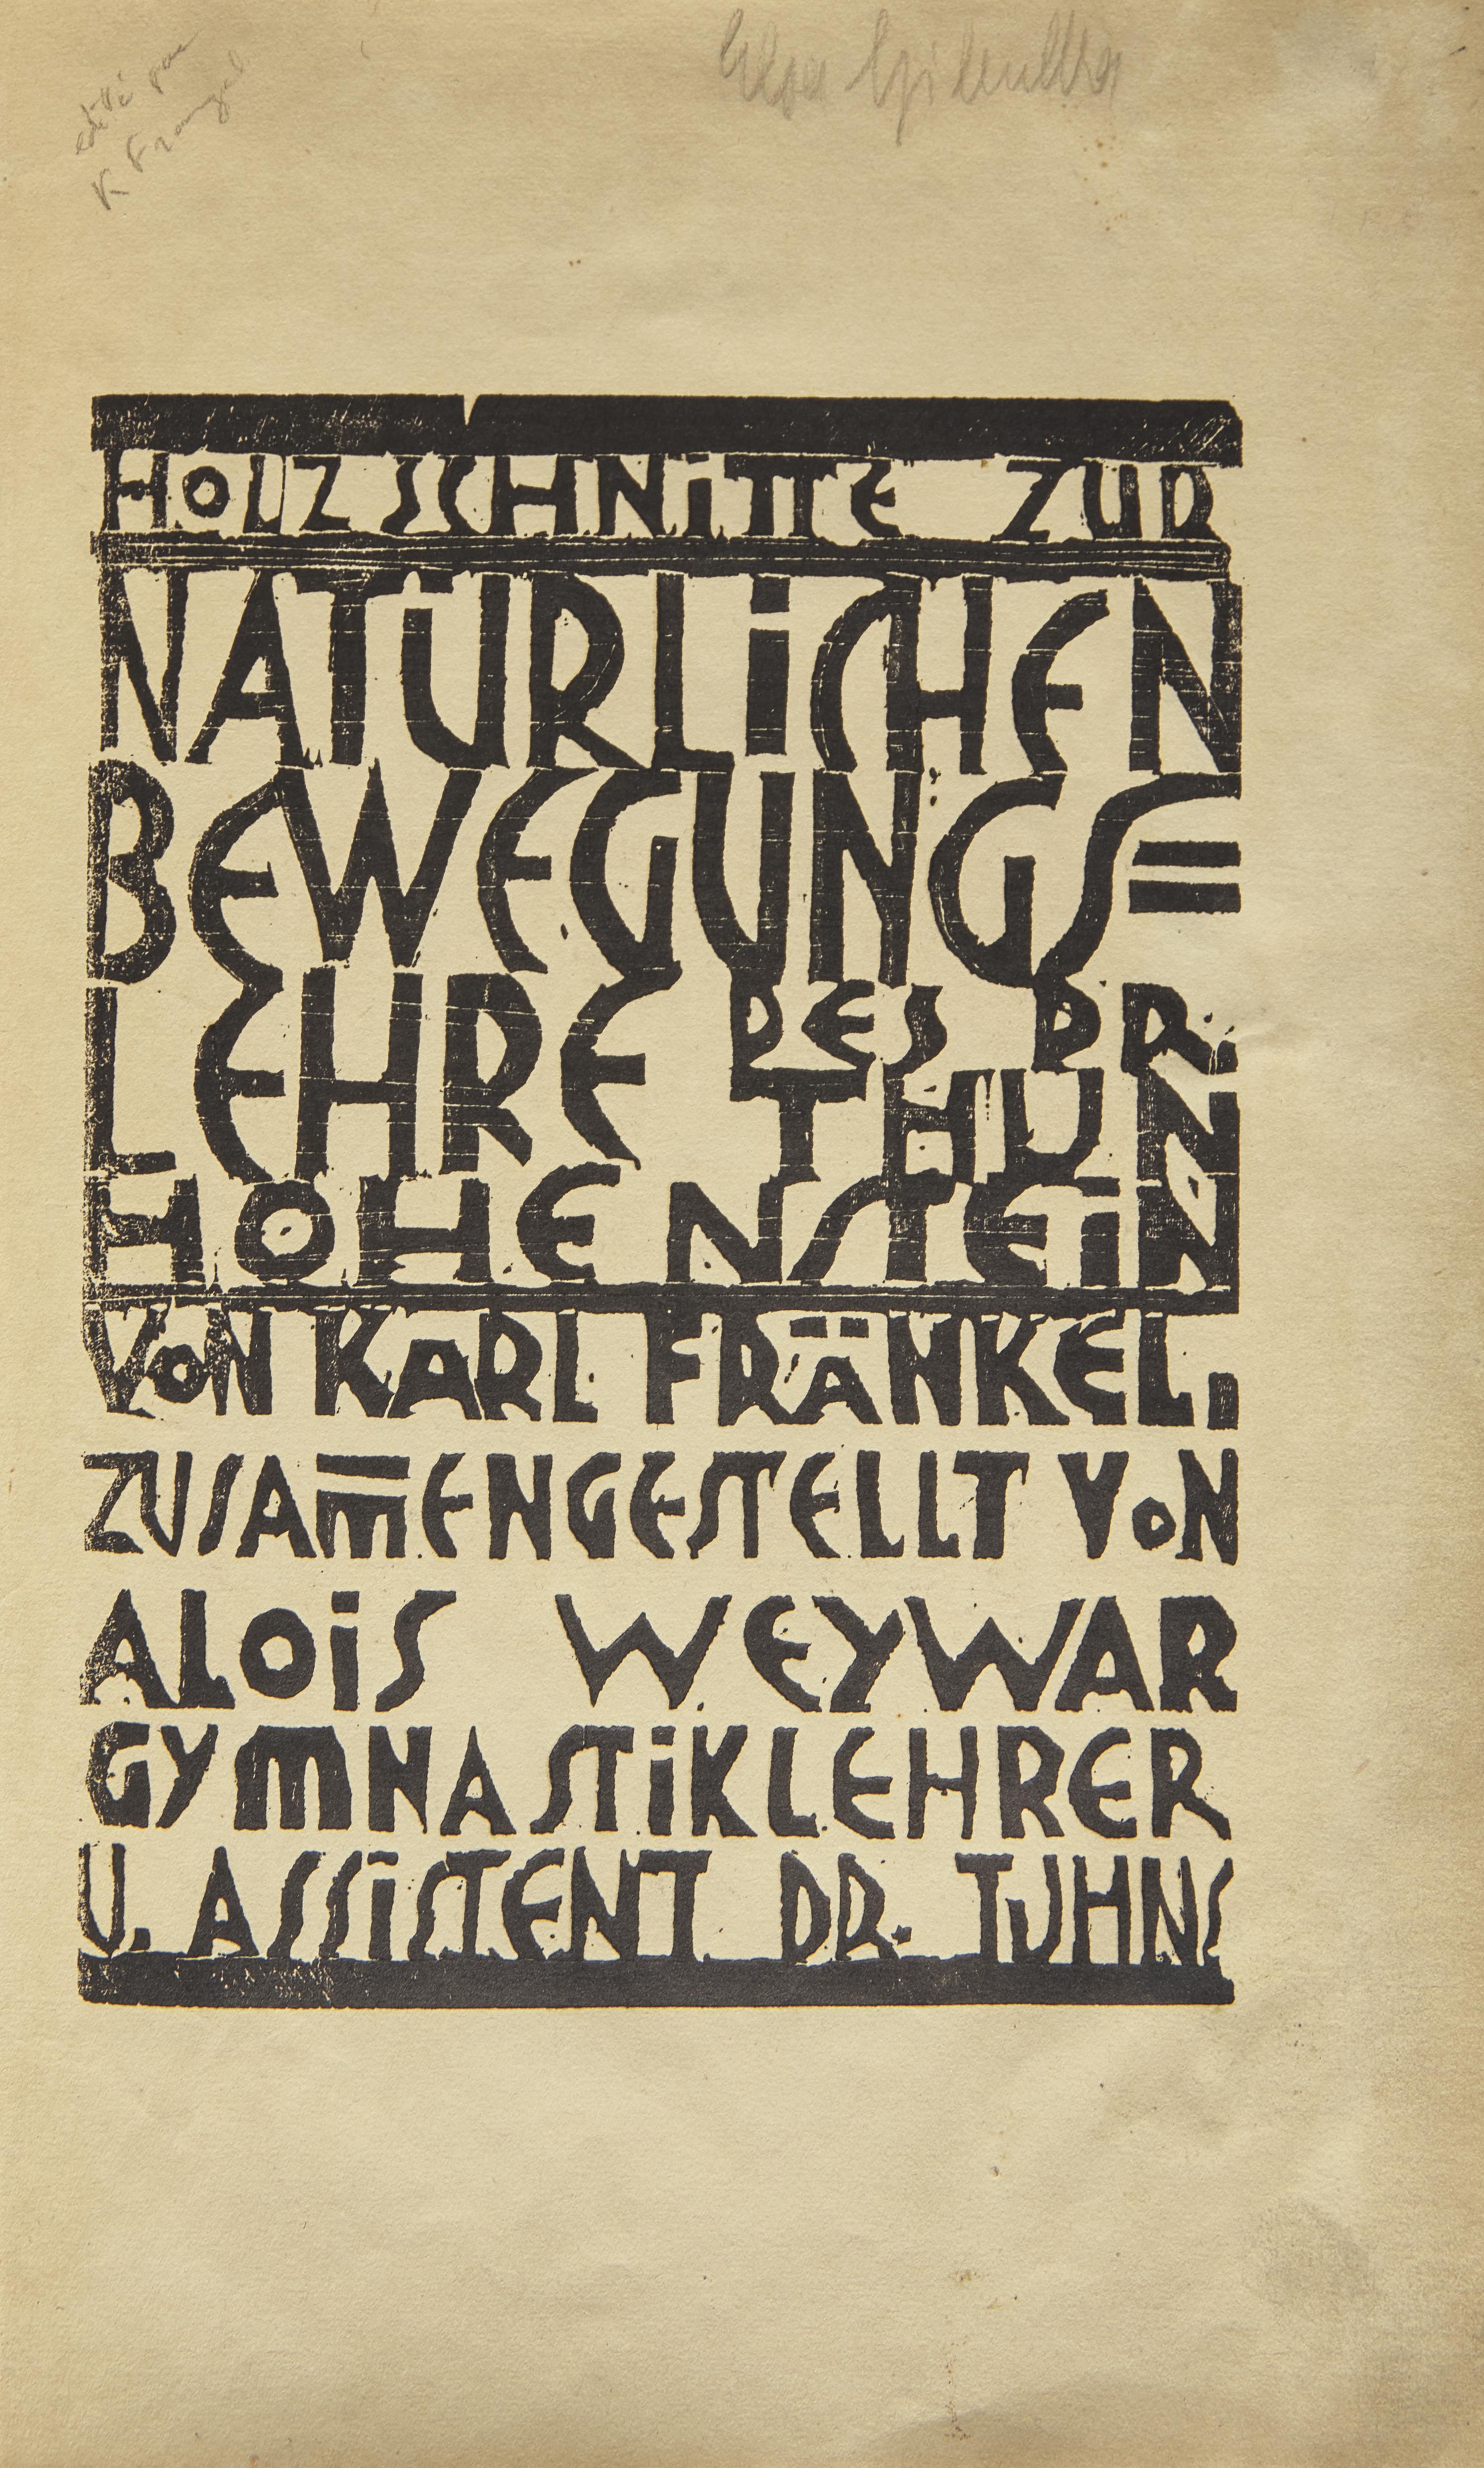 edité par
K Frangel
HOLZSCHNiTTE ZUR
NATÜRLiCHEN
BEWEGUNGS=
LEHRE DES DR.
THUN
HOHENSTEiN
VON KARL FRÄNKEL,
ZUSAM̅ENGESTELLT VON
ALOiS WEYWAR
GYMNASTiKLEHRER
U. ASSiSTENT DR. TUHNS